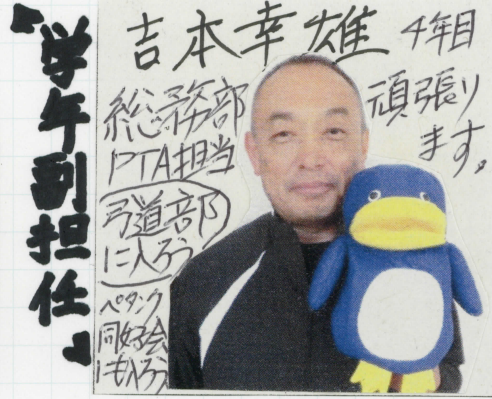 『学年副担任』
吉本幸雄 4年目
頑張り
ます。
総務部
PTA担当
弓道部
に入ろう
ペタンク
同好会
にも入ろう